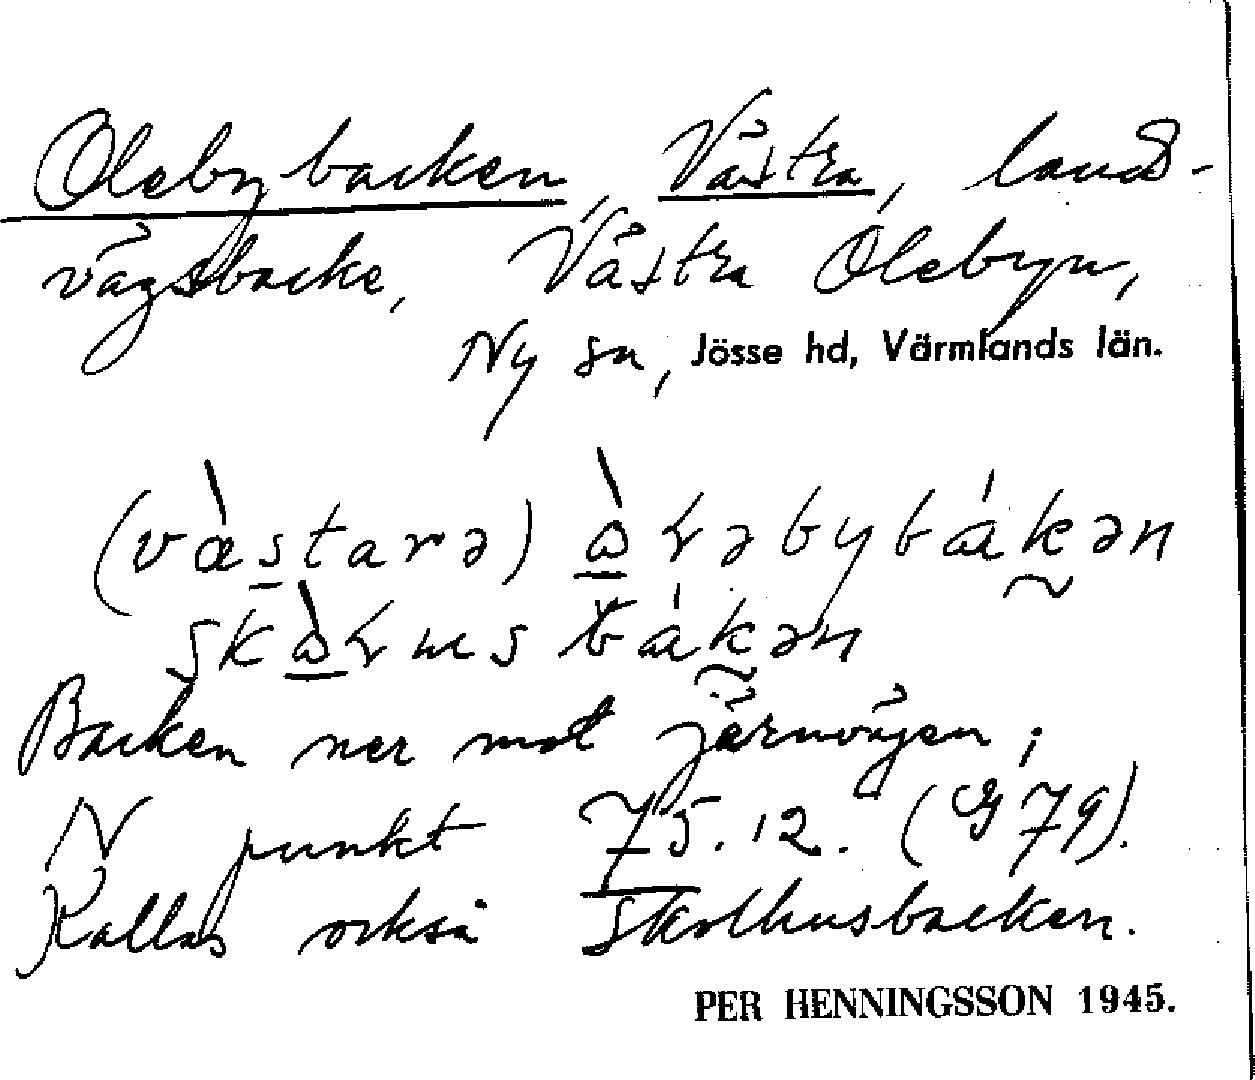 Olebybacken, Västra, lands-
vägsbacke, Västra Ölebyn,
Ny sn, Jösse hd, Värmlands län.
(væ̀stara) ɷ̀ɽəbybákən
skɷ̀ɽusbákən
Backen ner mot järnvägen;
N punkt 75.12. (G 79).
Kallas också Skolhusbacken.
PER HENNINGSSON 1945.